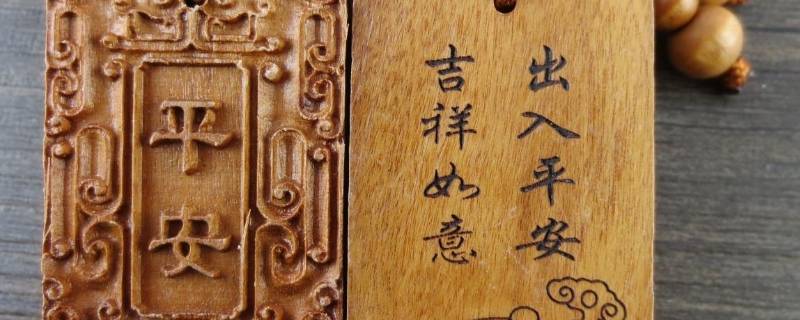 平安
出入平安
吉祥如意